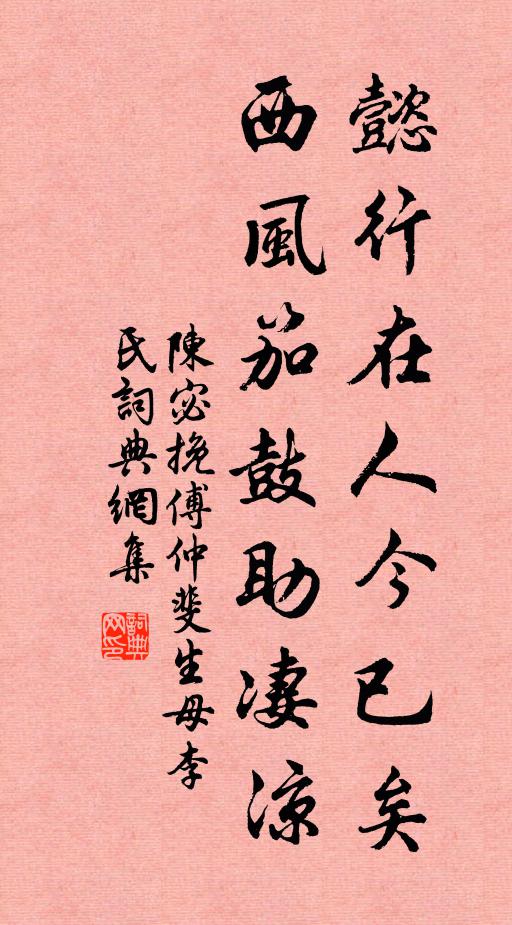 懿行在人今已矣
西風笳鼓助凄涼
陳宓挽傅仲斐生母李
氏詞典網集
詞典
网印